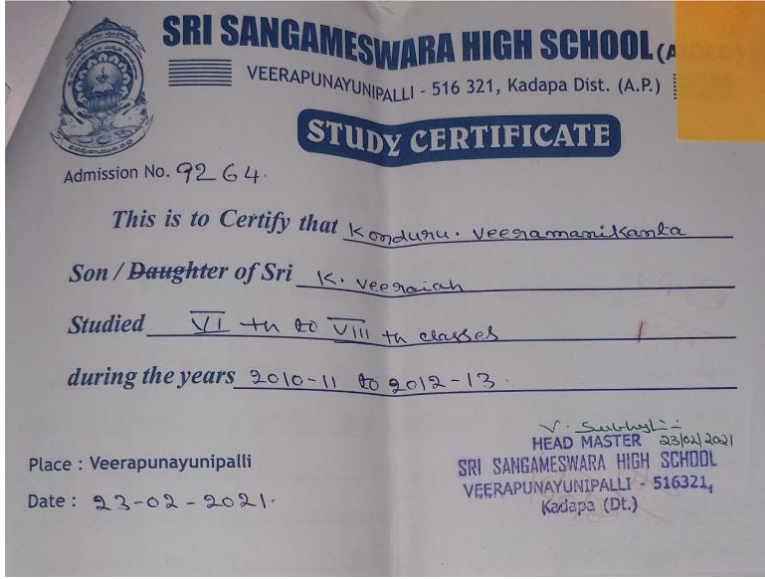 SRI SANGAMESWARA HIGH SCHOOL (A
VEERAPUNAYUNIPALLI - 516 321, Kadapa Dist. (A.P.)
STUDY CERTIFICATE
Admission No. 9264.
This is to Certify that Konduru. Veeramanikanta
Son / Daughter of Sri K. Veeraiah
Studied VI th to VIII th classes
during the years 2010-11 to 2012-13.
HEAD MASTER 23/02/2021
Place : Veerapunayunipalli
SRI SANGAMESWARA HIGH SCHOOL
VEERAPUNAYUNIPALLI - 516321,
Date : 23-02-2021.
Kadapa (Dt.)